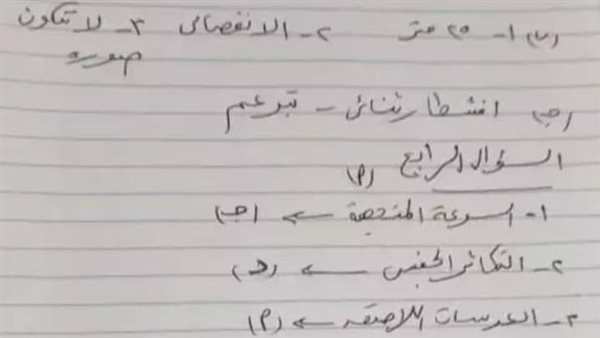 (ب) ١- ٢٥ متر ٢- الانفصالى ٣- لا تتكون
صوره
(جـ) انشطار ثنائى - تبرعم
السؤال الرابع (أ)
١- السرعة المتجهة ← (جـ)
٢- التكاثر الجنسى ← (د)
٣- العدسات اللاصقه ← (أ)